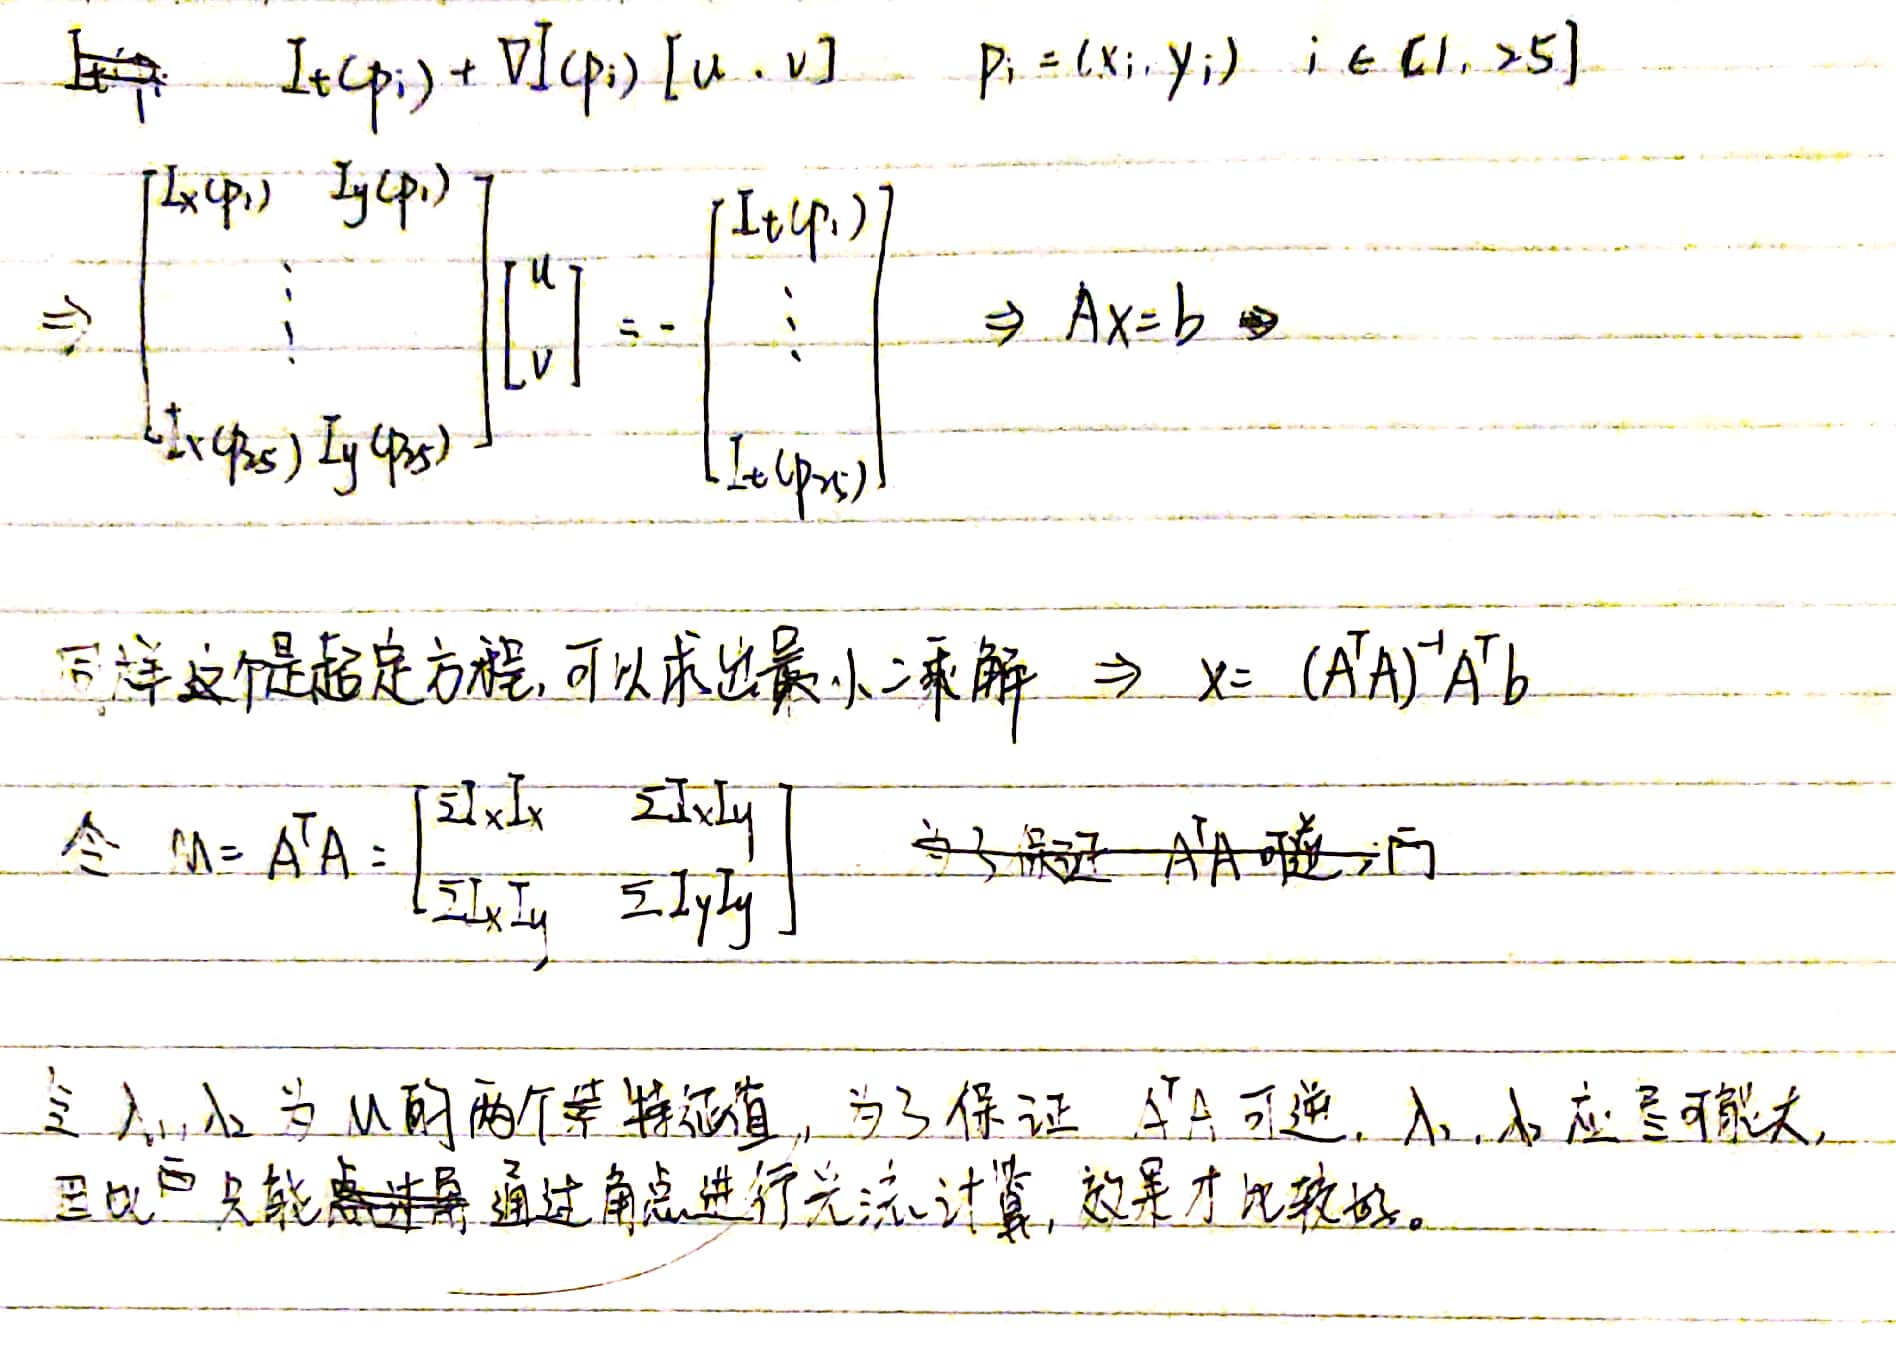 I_t(p_i) + ∇I(p_i) [u . v]    p_i = (x_i, y_i)    i ∈ [1, 25]
⇒ [I_x(p_1) I_y(p_1) ⋮ I_x(p_25) I_y(p_25)] [u v] = - [I_t(p_1) ⋮ I_t(p_25)] ⇒ Ax=b ⇒
同样这个是超定方程,可以求出最小二乘解 ⇒ x= (AᵀA)⁻¹Aᵀb
令 M = AᵀA = [ΣIxIx ΣIxIy ΣIxIy ΣIyIy] 为了保证 AᵀA 可逆,
令 λ1, λ2 为 M的两个特征值,为了保证 AᵀA 可逆. λ1, λ2 应尽可能大,
因此 只能 通过角点进行光流计算,效果才比较好。